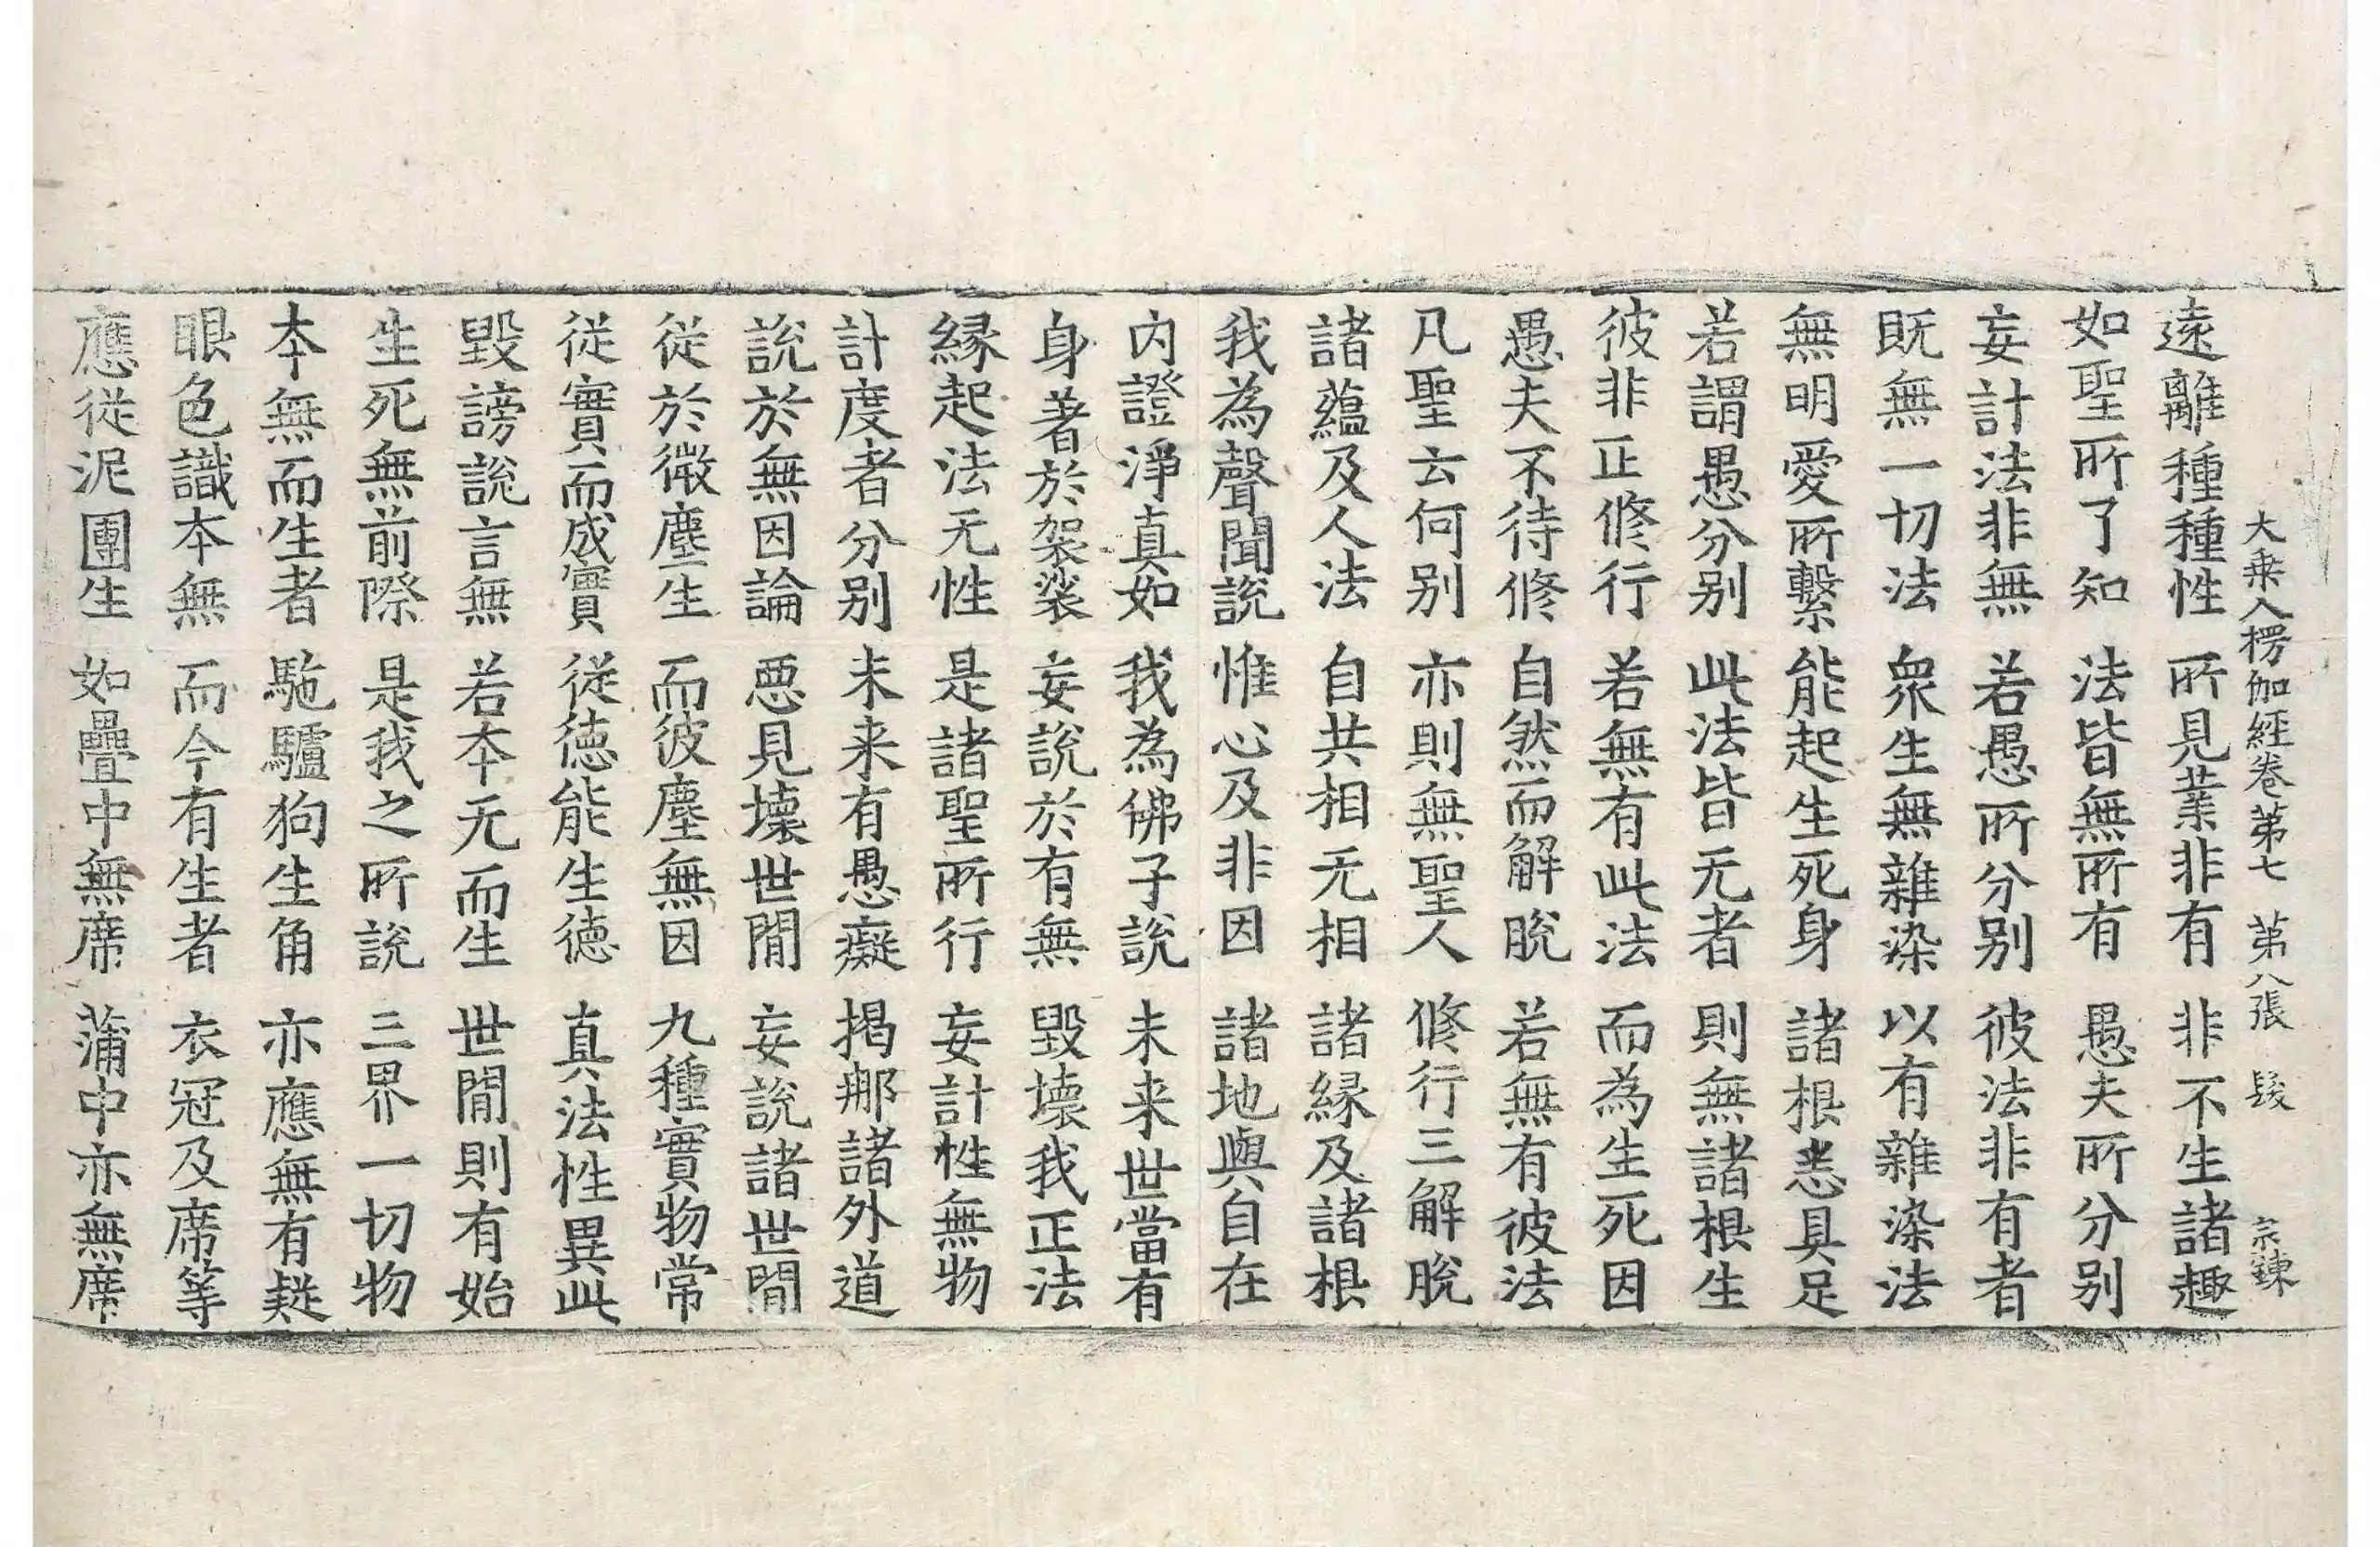 大乗入楞伽經卷第七 第八張 髮 宗鍊
遠離種種性 所見業非有 非不生諸趣
如聖所了知 法皆無所有 愚夫所分別
妄計法非無 若愚所分別 彼法非有者
既無一切法 衆生無雜染 以有雜染法
無明愛所繫 能起生死身 諸根悉具足
若謂愚分別 此法皆无者 則無諸根生
彼非正修行 若無有此法 而為生死因
愚夫不待修 自然而解脫 若無有彼法
凡聖云何別 亦則無聖人 修行三解脫
諸蘊及人法 自共相无相 諸緣及諸根
我為聲聞說 惟心及非因 諸地與自在
內證淨真如 我為佛子說 未来世當有
身著於袈裟 妄說於有無 毀壞我正法
緣起法无性 是諸聖所行 妄計性無物
計度者分別 未来有愚癡 揭那諸外道
說於無因論 惡見壞世閒 妄說諸世閒
從於微塵生 而彼塵無因 九種實物常
從實而成實 從德能生德 真法性異此
毀謗說言無 若本无而生 世閒則有始
生死無前際 是我之所說 三界一切物
本無而生者 駞驢狗生角 亦應無有疑
眼色識本無 而今有生者 衣冠及席等
應從泥團生 如疊中無席 蒲中亦無席